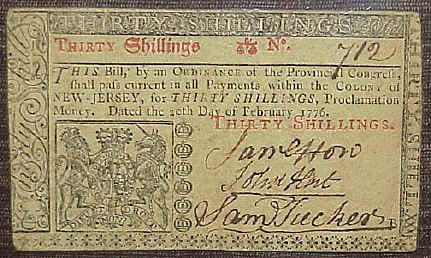 THIRTY SHILLINGS
THIRTY Shillings No. 712
THIS Bill, by an ORDINANCE of the Provincial Congress,
shall pass current in all Payments within the COLONY of
NEW-JERSEY, for THIRTY SHILLINGS, Proclamation
Money. Dated the 20th Day of February 1776.
THIRTY SHILLINGS.
Saml How
John Hart
Sam. Tucker